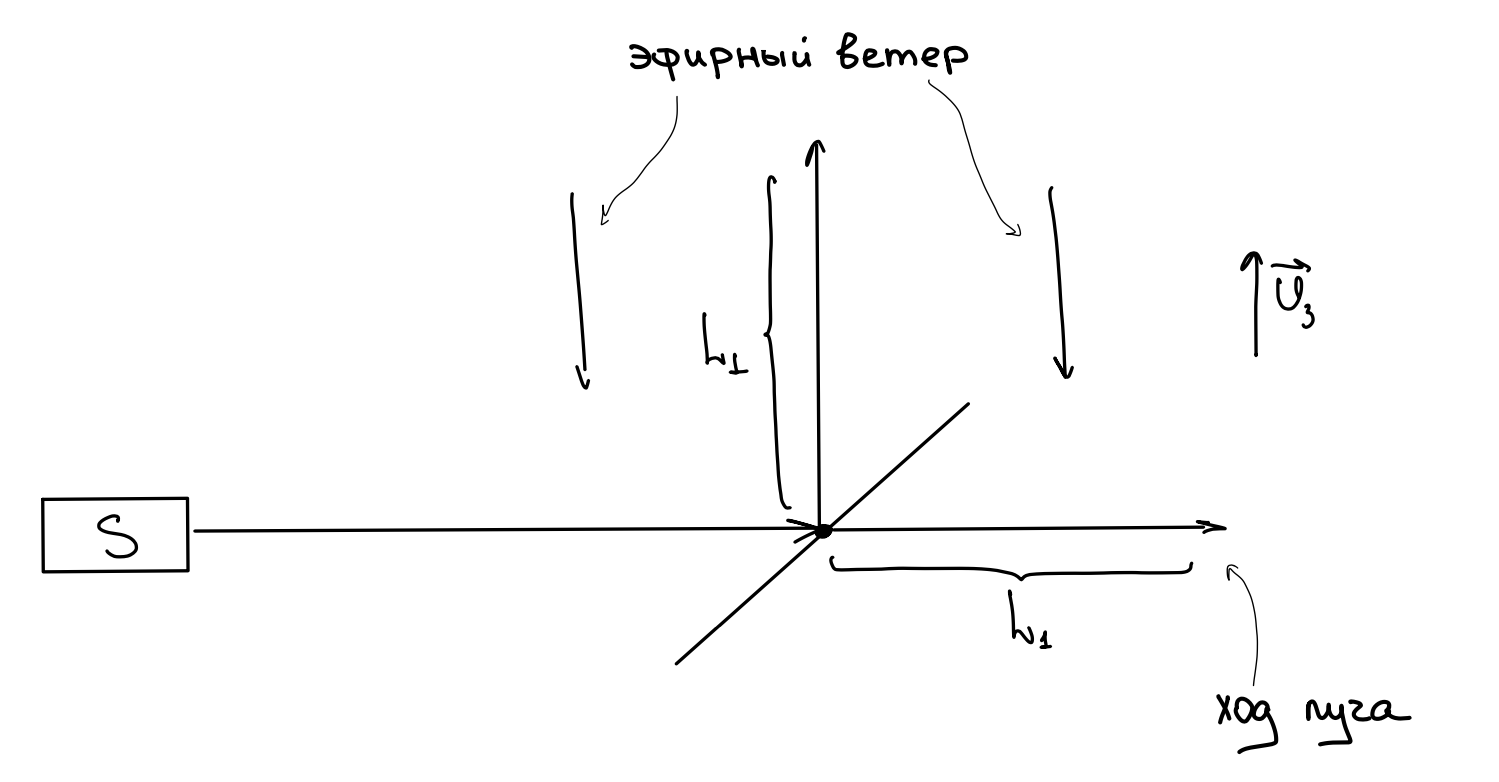 эфирный ветер
L₁
v⃗₃
S
L₁
ход луча